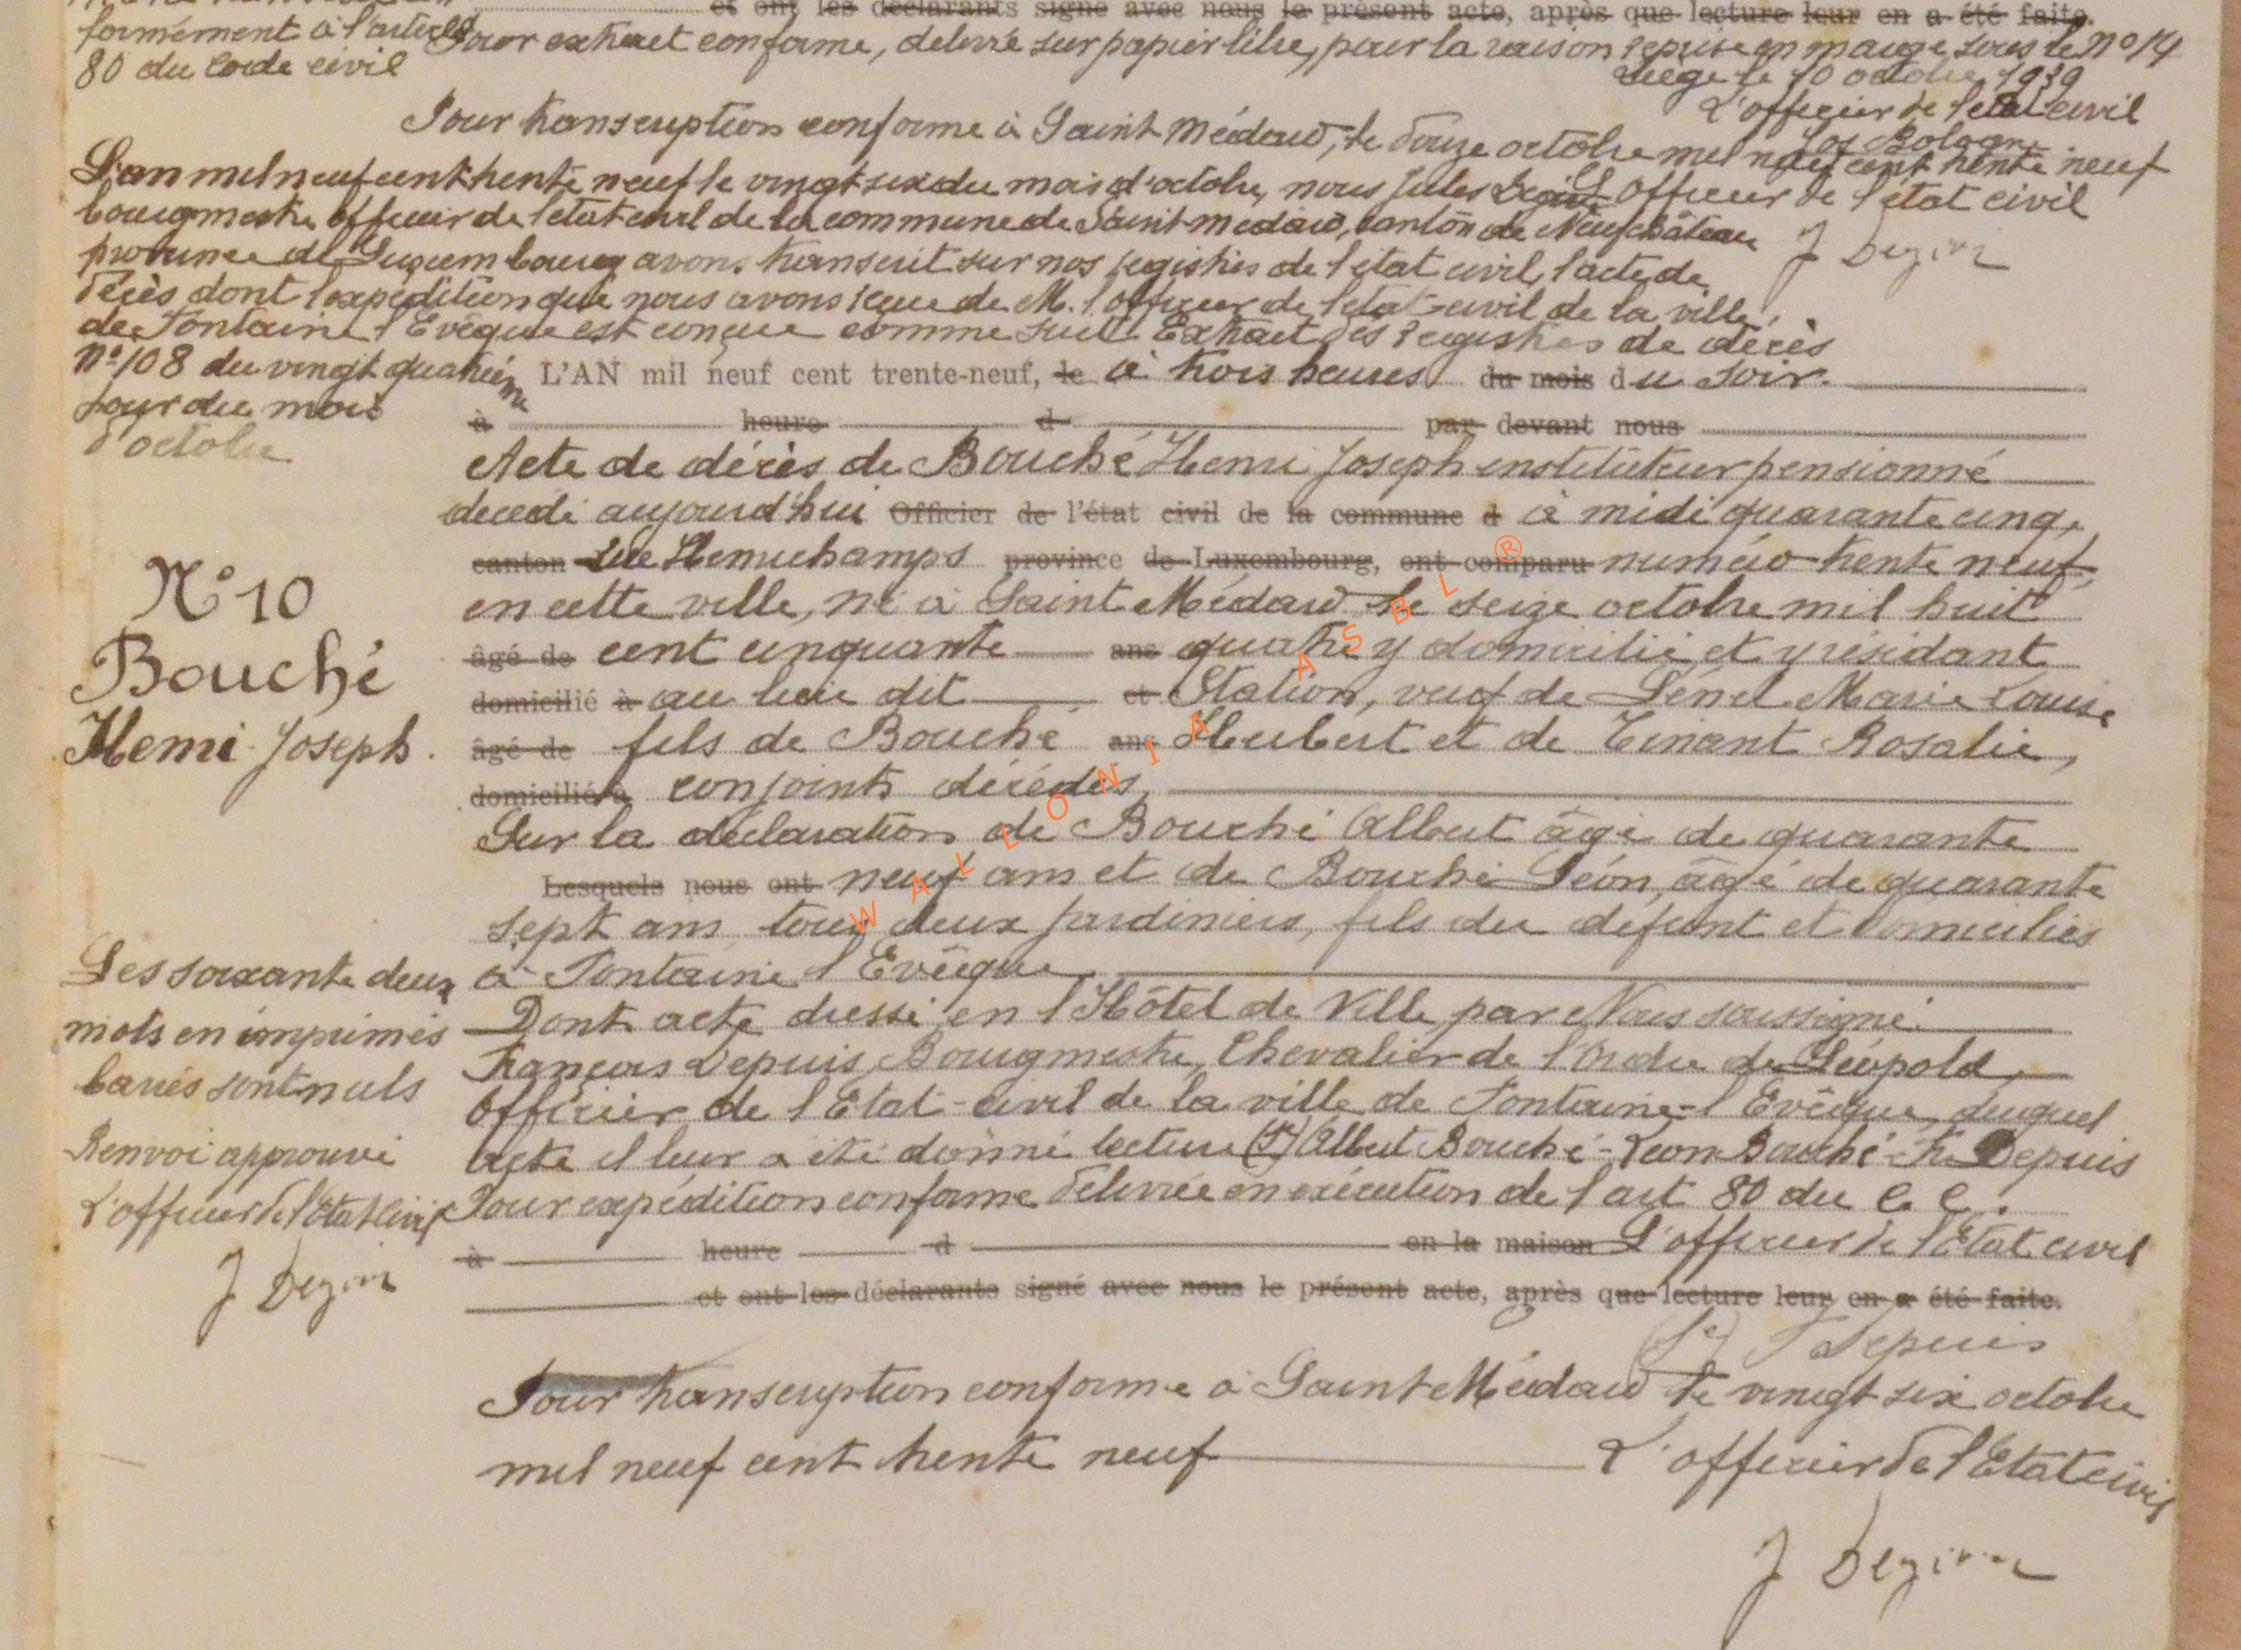 et ont les déclarants signé avec nous le présent acte, après que lecture leur en a été faite.
formément à l'article
80 du Code civil
Pour extrait conforme, délivré sur papier libre, pour la raison reprise en marge sous le No 14
Liége le 10 octobre 1939
L'officier de l'état civil
Jos Bologne
Pour transcription conforme à Saint Médard, le douze octobre mil neuf cent trente neuf
L'officier de l'état civil
J Dezin
L'an mil neuf cent trente neuf le vingt six du mois d'octobre, nous Jules
bourgmestre officier de l'état civil de la commune de Saint-Médard, canton de Neufchâteau
province de Luxembourg avons transcrit sur nos registres de l'état civil, l'acte de
décès dont l'expédition que nous avons reçue de M. l'officier de l'état civil de la ville
de Fontaine l'Evêque est conçue comme suit Extrait des registres de décès
No 108 du vingt quatrième
jour du mois
d'octobre
L'AN mil neuf cent trente-neuf, le à trois heures du mois du soir.
à heure d par devant nous
Acte de décès de Bouché Henri Joseph instituteur pensionné
décédé aujourd'hui Officier de l'état civil de la commune d à midi quarante cinq,
canton rue Hemuchamps province de Luxembourg, ont comparu numéro trente neuf,
en cette ville, né à Saint Médard le seize octobre mil huit
âgé de cent cinquante ans quatre y domicilié et y résidant
domicilié à au lieu dit et Station, veuf de Lénel Marie Louise
âgé de fils de Bouché ans Hubert et de Tinant Rosalie,
domicilié à conjoints décédés,
Sur la déclaration de Bouché Albert âgé de quarante
Lesquels nous ont neuf ans et de Bouché Léon, âgé de quarante
sept ans, tous deux jardiniers, fils du défunt et domiciliés
à Fontaine l'Evêque
Dont acte dressé en l'Hôtel de Ville, par Nous soussigné
François Depuis, Bourgmestre, Chevalier de l'Ordre de Léopold,
Officier de l'Etat-civil de la ville de Fontaine-l'Evêque, duquel
acte il leur a été donné lecture (Sé) Albert Bouché - Léon Bouché - Fr. Depuis
Pour expédition conforme délivrée en exécution de l'art 80 du C. C.
à heure d en la maison L'officier de l'Etat civil
et ont les déclarants signé avec nous le présent acte, après que lecture leur en a été faite.
(Sé) F Depuis
Pour transcription conforme à Saint Médard le vingt six octobre
mil neuf cent trente neuf
L'officier de l'Etat civil
J Dezin
No 10
Bouché
Henri Joseph.
Les soixante deux
mots en imprimés
barrés sont nuls
Renvoi approuvé
L'officier de l'Etat Civil
J Dezin
WALLONIA ASBL ®